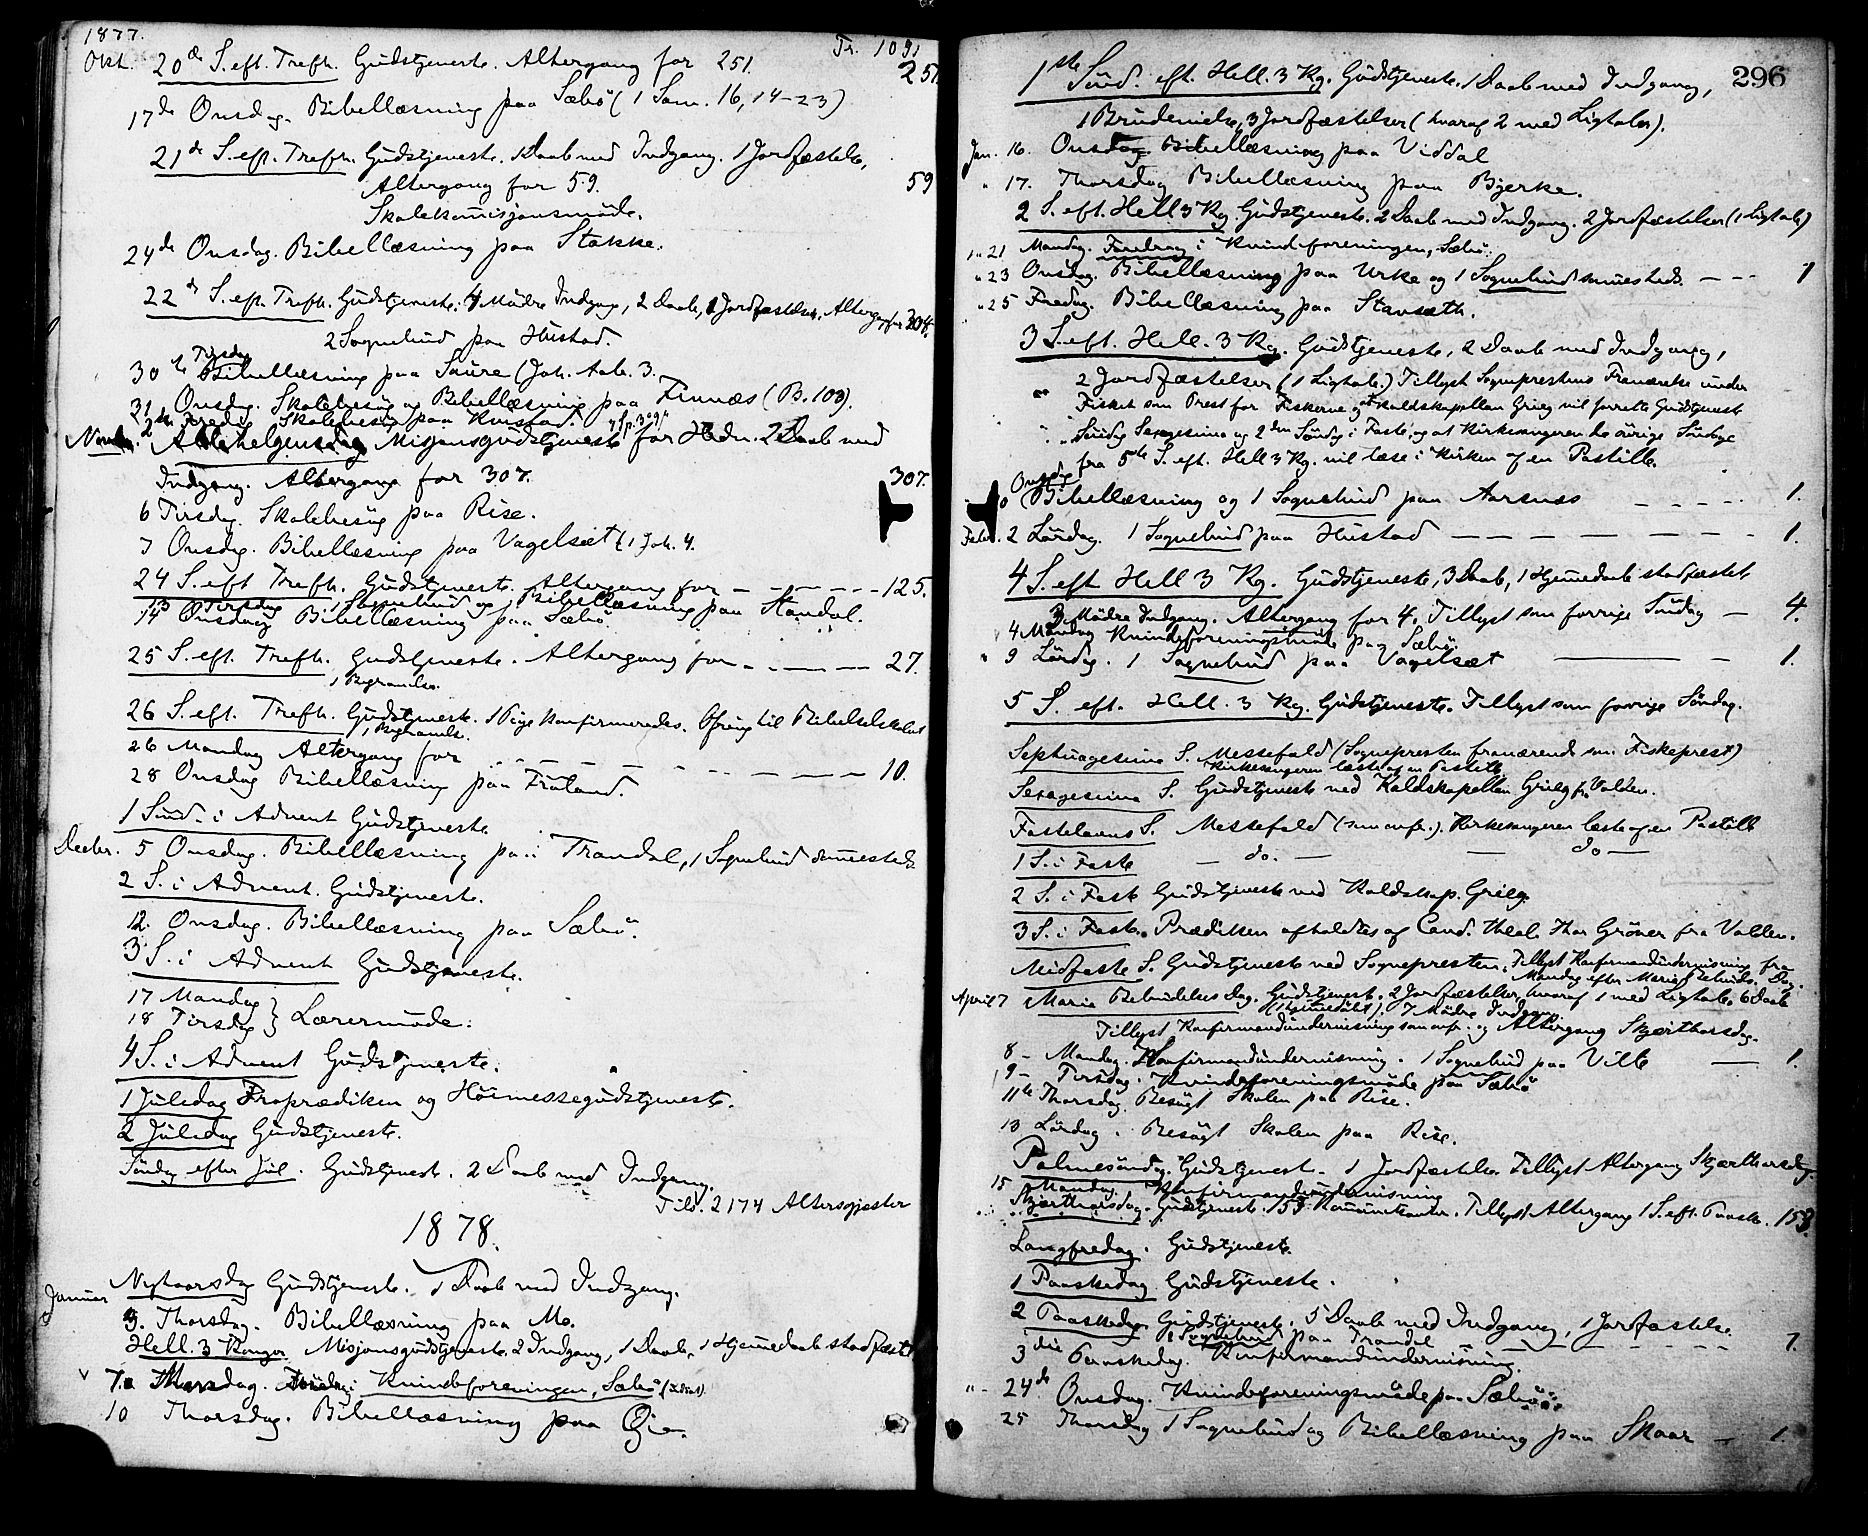 1877.
Tr. 1091
Okt. 20de S. eft. Trefh. Gudstjeneste. Altergang for 251. 251
17de Onsdag. Bibellæsning paa Sæbø (1 Sam. 16, 14-23)
21de S. eft. Trefh. Gudstjeneste. 1 Daab med Indgang. 1 Jordfæstelse,
Altergang for 59. 59
Skolekomisjonsmøde.
24de Onsdag. Bibellæsning paa Stokke.
22de S. eft. Trefh. Gudstjeneste. 4 Mødre Indgang, 2 Daab, Jordfæstelser, Altergang for 304.
2 Sognebud paa Hustad.
30te Tirsdag Bibellæsning paa Saure (Joh. Aab. 3.
31 Onsdag. Skolebesøg og Bibellæsning paa Finnæs (B. 103).
2den Fredag Skolebesøg paa Hustad.
Novbr. Allehelgensdag Misjonsgudstjeneste for Hedn. 2 Daab med
Indgang. Altergang for 307. 307.
6 Tirsdag. Skolebesøg paa Rise.
7 Onsdag. Bibellæsning paa Vagelsæt (1 Joh. 4.
24 S. eft Trefh. Gudstjeneste. Altergang for - - - - 125.
13 Tirsdag 1 Sognebud og Bibellæsning paa Standal.
14 Onsdag Bibellæsning paa Sæbø
25 S. eft. Trefh. Gudstjeneste. Altergang for - - - - 27.
1 Begravelse.
26 S. eft. Trefh. Gudstjeneste. 1 Pige konfirmeredes. Ofring til Bibelselskabet
1 Begravelse.
26 Mandag Altergang for - - - - 10.
28 Onsdag Bibellæsning paa
1 Sønd. i Advent Gudstjeneste
Decbr. 5 Onsdag. Bibellæsning paa Trandal, 1 Sognebud sammesteds
2 S. i Advent. Gudstjeneste.
12. Onsdag. Bibellæsning paa Sæbø.
3 S. i Advent Gudstjeneste.
17 Mandag
18 Tirsdag } Lærermøde.
4 S. i Advent Gudstjeneste.
1 Juledag Froprædiken og Høimessegudstjeneste.
2 Juledag Gudstjeneste.
Søndag efter Jul. Gudstjenest. 2 Daab med Indgang.
Tils. 2174 Altersgjester
1878.
Nytaarsdag Gudstjeneste. 1 Daab med Indgang.
Januar 3. Thorsdag. Bibellæsning paa Mo.
Hell. 3 Konger Misjonsgudstjeneste. 2 Indgang, 1 Daab, 1 Hjemmedaab stadfæstet
7. Kvindeforeningen, Sæbø
10 Thorsdag. Bibellæsning paa Øie.
296
1ste Sønd. eft. Hell. 3 Kg. Gudstjeneste. 1 Daab med Indgang,
1 Brudevielse, 3 Jordfæstelser (hvoraf 2 med Ligtaler).
Jan. 16. Onsdag Bibellæsning paa Viddal
" 17. Thorsdag Bibellæsning paa Bjerke.
2 S. eft. Hell 3 Kg Gudstjeneste. 2 Daab med Indgang. 2 Jordfæstelser (1 Ligtale)
" 21 Mandag. Foredrag i Kvindeforeningen, Sæbø.
" 23 Onsdag. Bibellæsning paa Urke og 1 Sognebud sammesteds - - - 1
" 25 Fredag. Bibellæsning paa Stavsæth.
3 S. eft. Hell. 3 Kg. Gudstjeneste, 2 Daab med Indgang,
2 Jordfæstelser (1 Ligtale.) Tillyst Sogneprestens Fraværelse under
Fisket som Prest for Fiskerne og at Kaldskapellan Grieg vil forrette Gudstjeneste
Søndag Sexagesima og 2den Søndag i Faste, og at Kirkesangeren de øvrige Søndage
fra 5te S. eft. Hell 3 Kg. vil læse i Kirken af en Postille.
Onsdag Bibellæsning og 1 Sognebud paa Aarsnæs - - - - 1.
Febr. 2 Lørdag. 1 Sognebud paa Hustad - - - - 1.
4 S. eft Hell 3 Kg. Gudstjeneste, 3 Daab, 1 Hjemmedaab stadfæstet,
3 Mødre Indgang. Altergang for 4. Tillyst som forrige Søndag - 4.
4 Mandag Kvindeforeningsmøde paa Sæbø.
9 Lørdag. 1 Sognebud paa Vagelsæt - 1.
5 S. eft. Hell. 3 Kg. Gudstjeneste. Tillyst som forrige Søndag.
Septuagesima S. Messefald (Sognepresten fraværende som Fiskeprest)
Kirkesangeren læste af en Postille
Sexagesima S. Gudstjeneste ved Kaldskapellan Grieg fr. Volden.
Fastelavns S. Messefald (som ovenfr.). Kirkesangeren læste af en Postille
1 S. i Faste - do. - - do -
2 S. i Faste Gudstjeneste ved Kaldskap. Grieg.
3 S. i Faste. Prædiken afholdtes af Cand. theol. Thor Grøner fra Volden.
Midfaste S. Gudstjeneste ved Sognepresten. Tillyst Konfirmandundervisning fra
Mandag efter Mariæ Bebud. Dag.
April 7 Mariæ Bebudelses Dag. Gudstjenest. 2 Jordfæstelser, hvoraf 1 med Ligtale 6 Daab
(1 Hjemmedøbt). 7 Mødre Indgang.
Tillyst Konfirmandundervisning som ovfr. og Altergang Skjærthorsdag.
8 - Mandag. Konfirmandundervisning. 1 Sognebud paa Ville - 1.
9 - Tirsdag. Kvindeforeningsmøde paa Sæbø
11te Thorsdag. Besøgt Skolen paa Rise.
13 Lørdag. Besøgt Skolen paa Rise.
Palmesøndag. Gudstjeneste. 1 Jordfæstelse. Tillyst Altergang Skjærthorsdag.
15 Mandag. Konfirmandundervisning
Skjærthorsdag. Gudstjeneste. 153 Kommunikanter. Tillyst Altergang 1 S. eft. Paaske. 153.
Langfredag. Gudstjeneste
1 Paaskedag Gudstjeneste.
2 Paaskedag Gudstjeneste. 5 Daab med Indgang, 1 Jordfæstelse
1 Sognebud paa Trandal - - - - 1.
3die Paaskedag. Konfirmandundervisning.
24de Onsdag. Kvindeforeningsmøde paa Sæbø.
25 Thorsdag 1 Sognebud og Bibellæsning paa Skaar - 1.